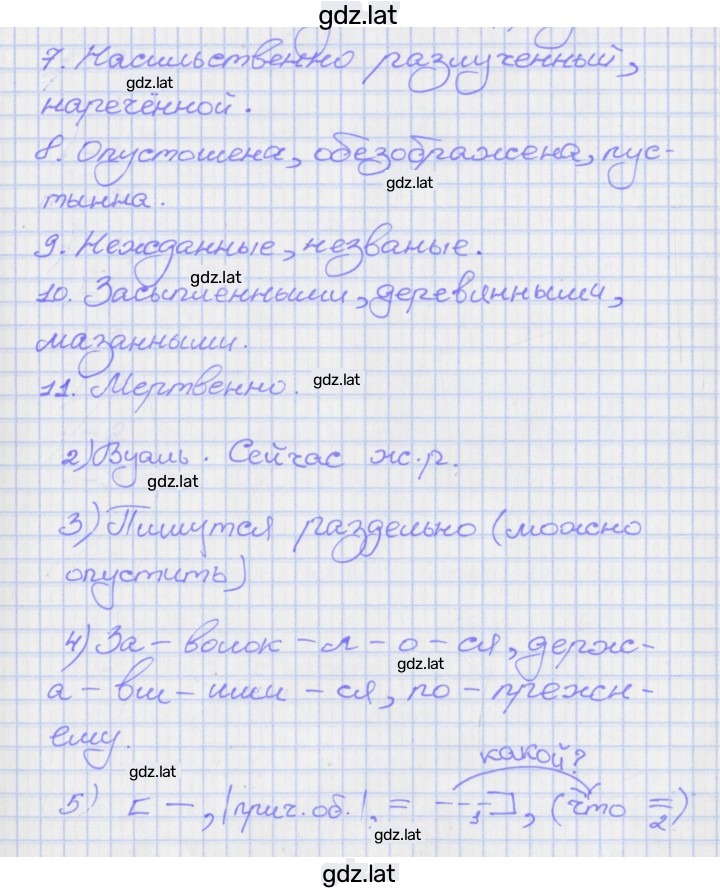 gdz.lat
7. Насильственно разлученный,
gdz.lat
наречённой.
8. Опустошена, обезображена, пус-
gdz.lat
тынна.
9. Нежданные, незваные.
gdz.lat
10. Засыпленными, деревянными,
мазанными.
11. Мертвенно.
gdz.lat
2) Вуаль. Сейчас ж.р.
gdz.lat
3) Пишутся раздельно (можно
опустить)
4) За-волок-л-о-ся, держ-
gdz.lat
а-вш-ими-ся, по-прежн-
ему.
gdz.lat
какой?
5) [—, |прич.об.|, = -–-1], (что =2)
gdz.lat
gdz.lat